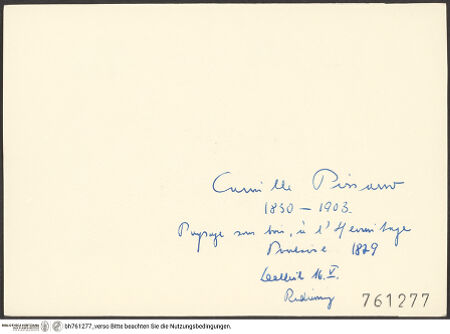 Camille Pissarro
1830 – 1903
Paysage sous bois, à l'Hermitage
Pontoise 1879
16. V.
761277
bh761277, verso Bitte beachten Sie die Nutzungsbedingungen.